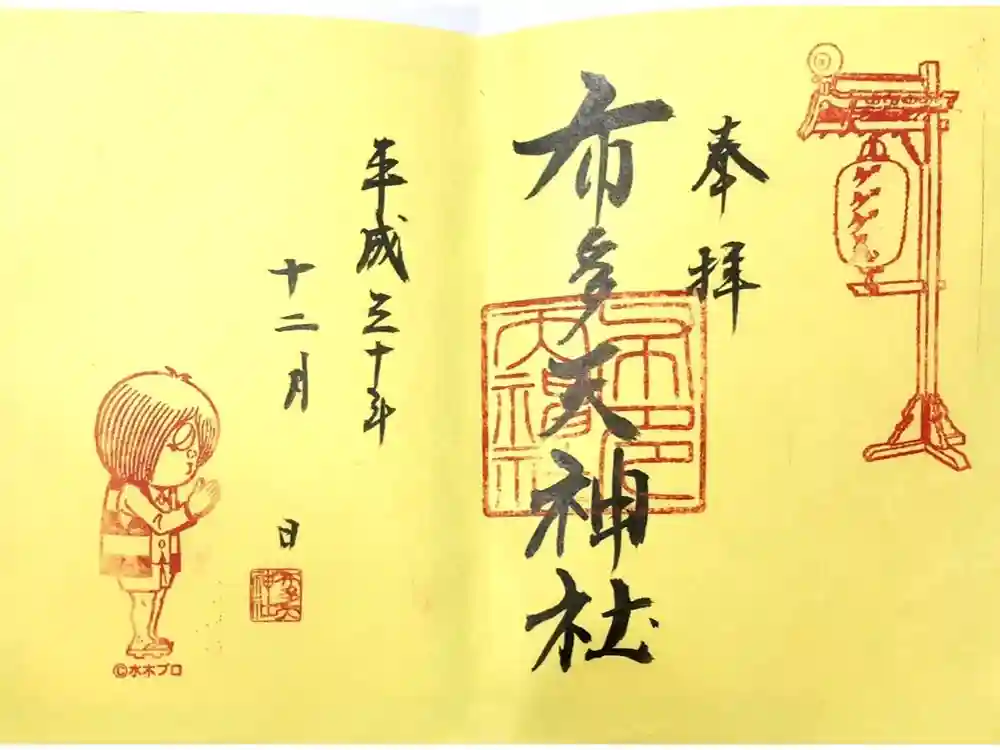 奉拝
布多天神社
平成三十年
十二月 日
布多天神社
©水木プロ